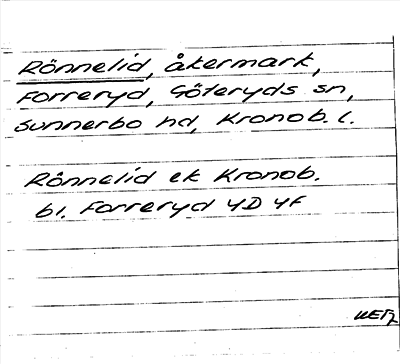 Rönnelid, åkermark,
Forreryd, Göteryds sn,
Sunnerbo hd, Kronob. l.
Rönnelid ek Kronob.
bl. Forreryd 4D 4f